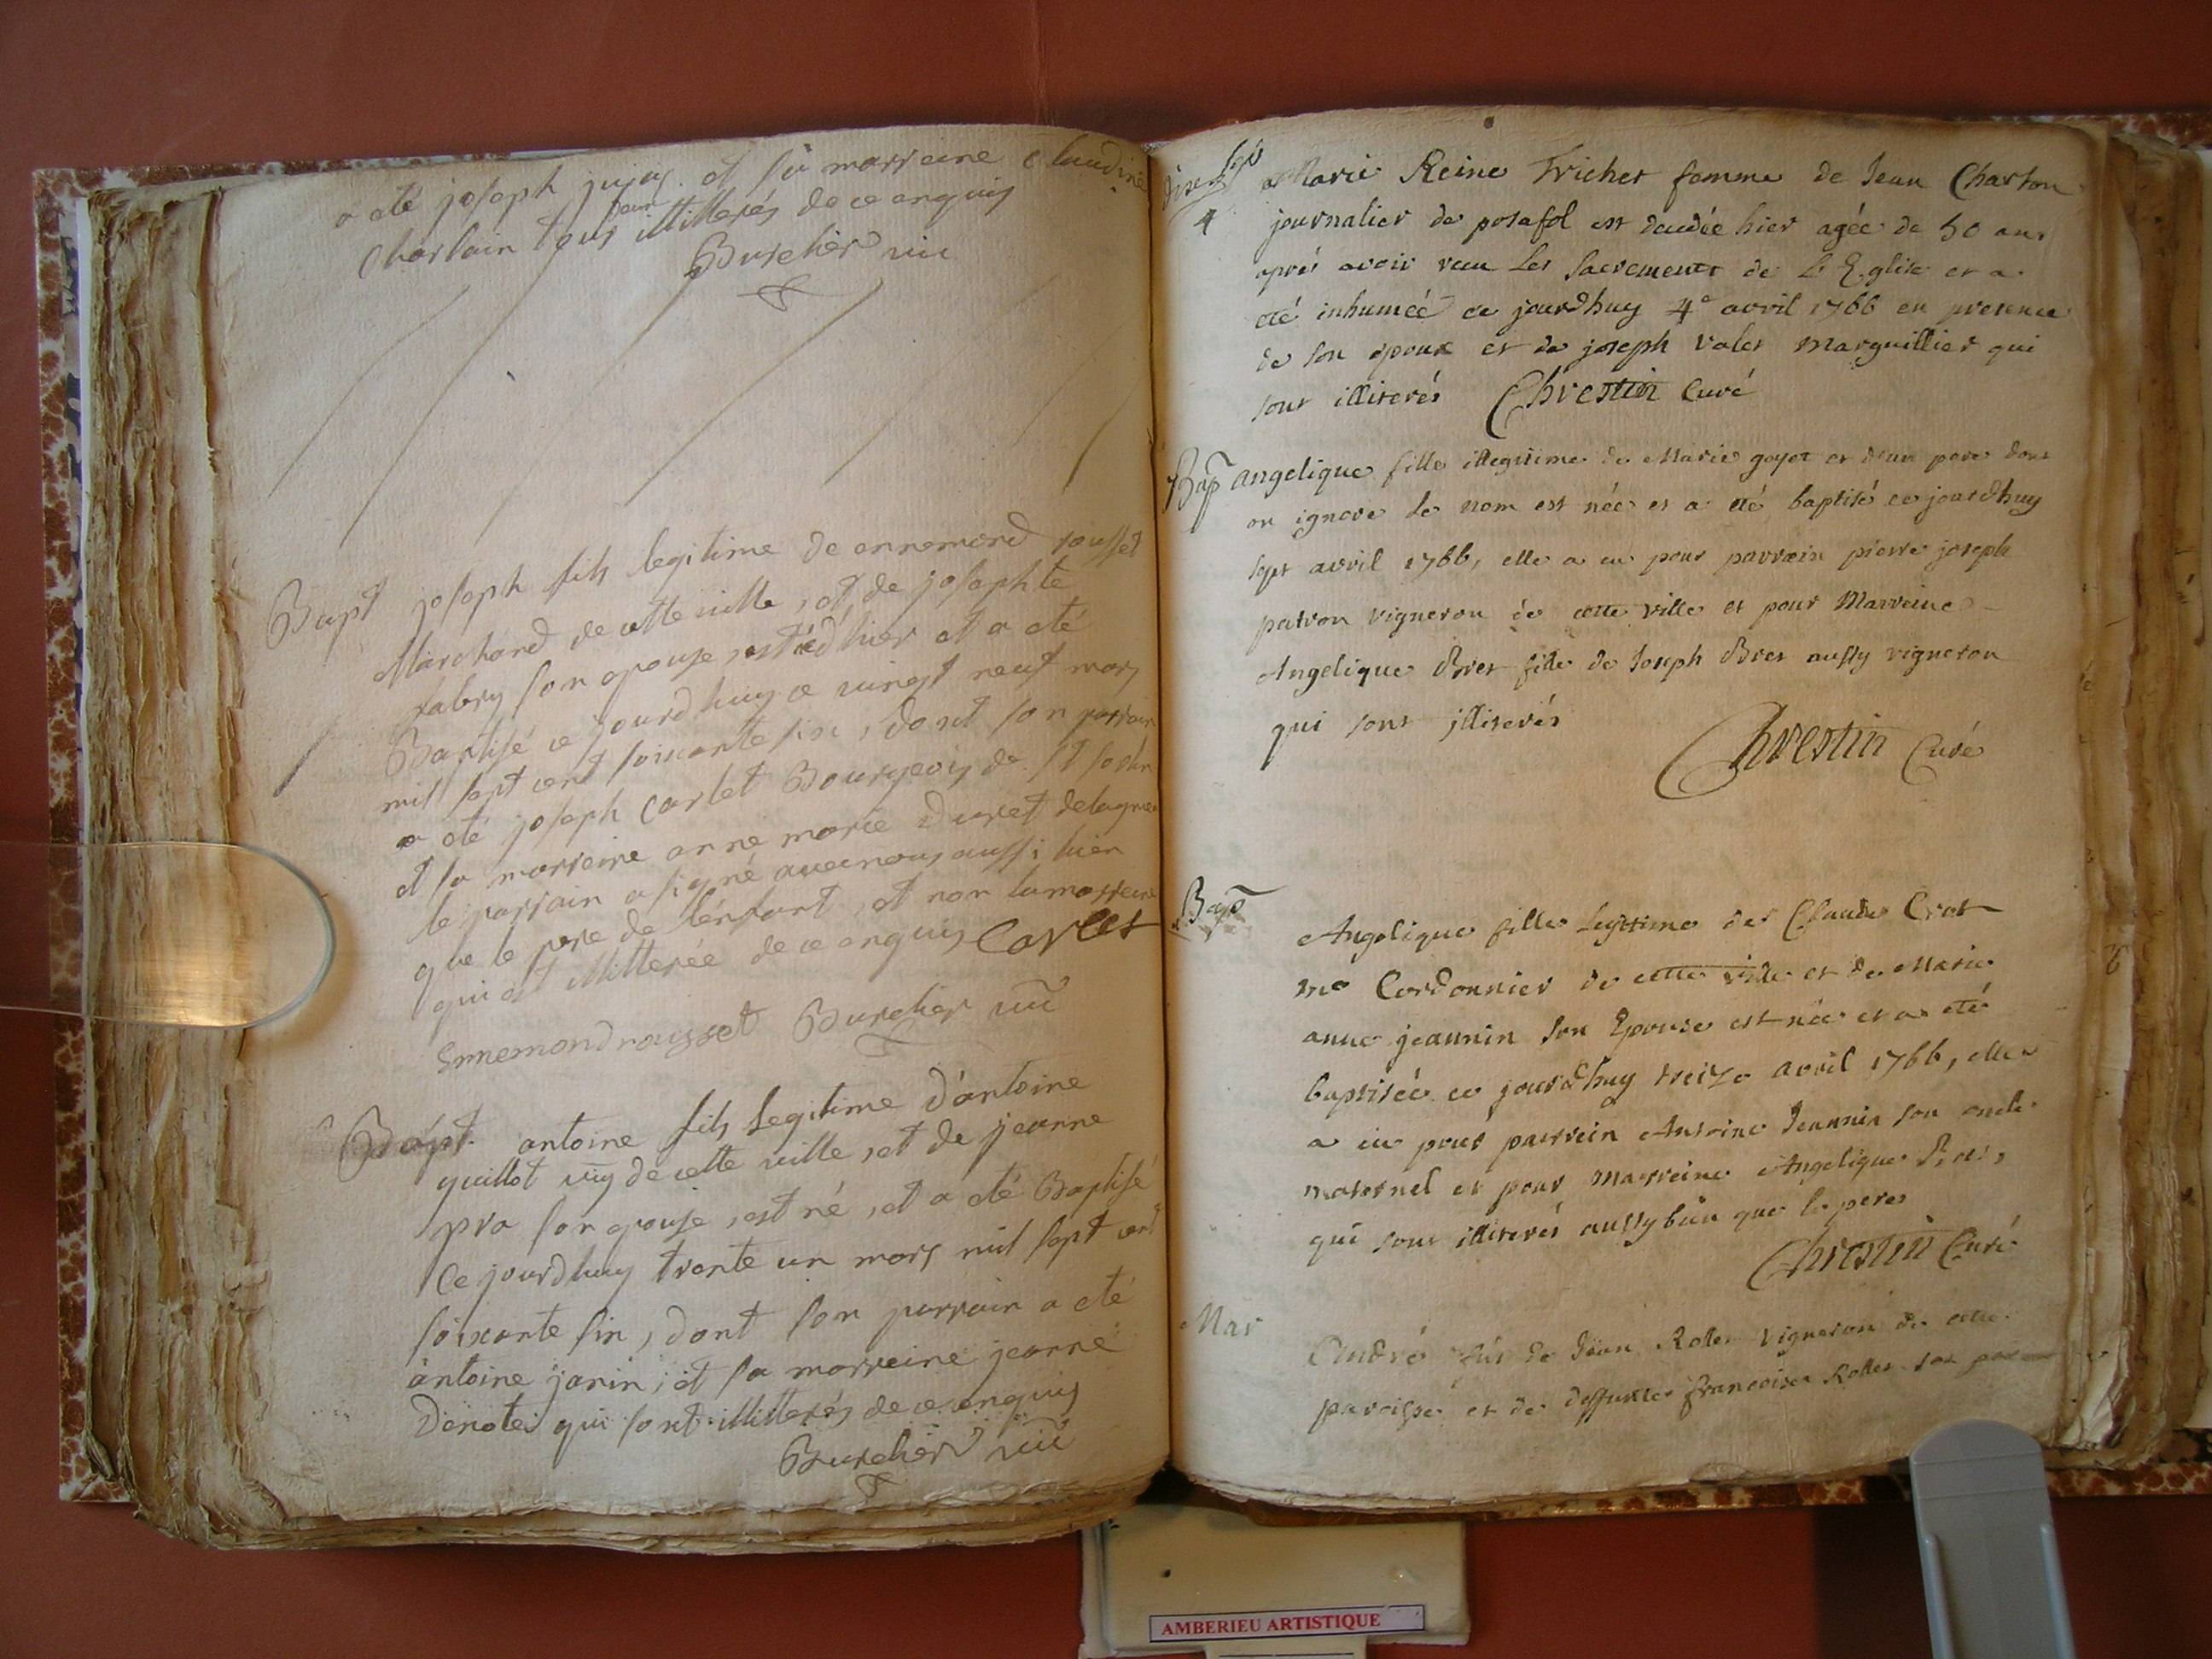 a eté joseph jujas et sa marraine claudine
Charlain tous deux illitterés de ce enquis
Burelier vic
Bapt joseph fils legitime de ennemond rousset
Marchand de cette ville, et de josephte
fabry son epouse, est né d'hier et a eté
Baptisé ce jourdhuy ce vingt neuf mars
mil sept cent soixante six, dont son parrain
a eté joseph Carlet Bourgeois de St
et sa marraine anne marie Duret delagnieu
le parrain a signé avec nous aussi bien
que le pere de l'enfant, et non la marreine
qui est illitterée de ce enquis Carlet
Ennemond rousset Burelier vic
Bapt. antoine fils Legitime d'antoine
guillot vig de cette ville, et de jeanne
pra son epouse, est né, et a eté Baptisé
Ce jourdhuy trente un mars mil sept cent
soixante six, dont son parrain a eté
antoine janin, et sa marreine jeanne
Denotes qui sont illitterés de ce enquis
Burelier vic
4
Marie Reine Trichet femme de Jean Charton
journalier de posafol est decedée hier agée de 50 ans
aprés avoir recu les Sacrements de L'Eglise et a
eté inhumée ce jourdhuy 4e avril 1766 en presence
de son epoux et de joseph valet marguillier qui
sont illiterés Chrestin Curé
Bap angelique fille illegitime de Marie goyet et d'un pere dont
on ignore le nom est née et a eté baptisé ce jourdhuy
sept avril 1766, elle a eu pour parrain pierre joseph
patron vigneron de cette ville et pour Marreine
Angelique Bret fille de Joseph Bret aussy vigneron
qui sont jlliterés
Chrestin Curé
Bap
Angelique fille Legitime de Claude Crot
me Cordonnier de cette ville et de Marie
anne jeannin son Epouse est née et a eté
baptisée ce jourdhuy treize avril 1766, elle
a eu pour parrein Antoine Jeannin son oncle
maternel et pour marreine Angelique
qui sont illiterés aussy bien que le pere
Chrestin Curé
Mar
André fils de Jean Rollet vigneron de cette
paroisse et de deffunte francoise Rollet
AMBERIEU ARTISTIQUE